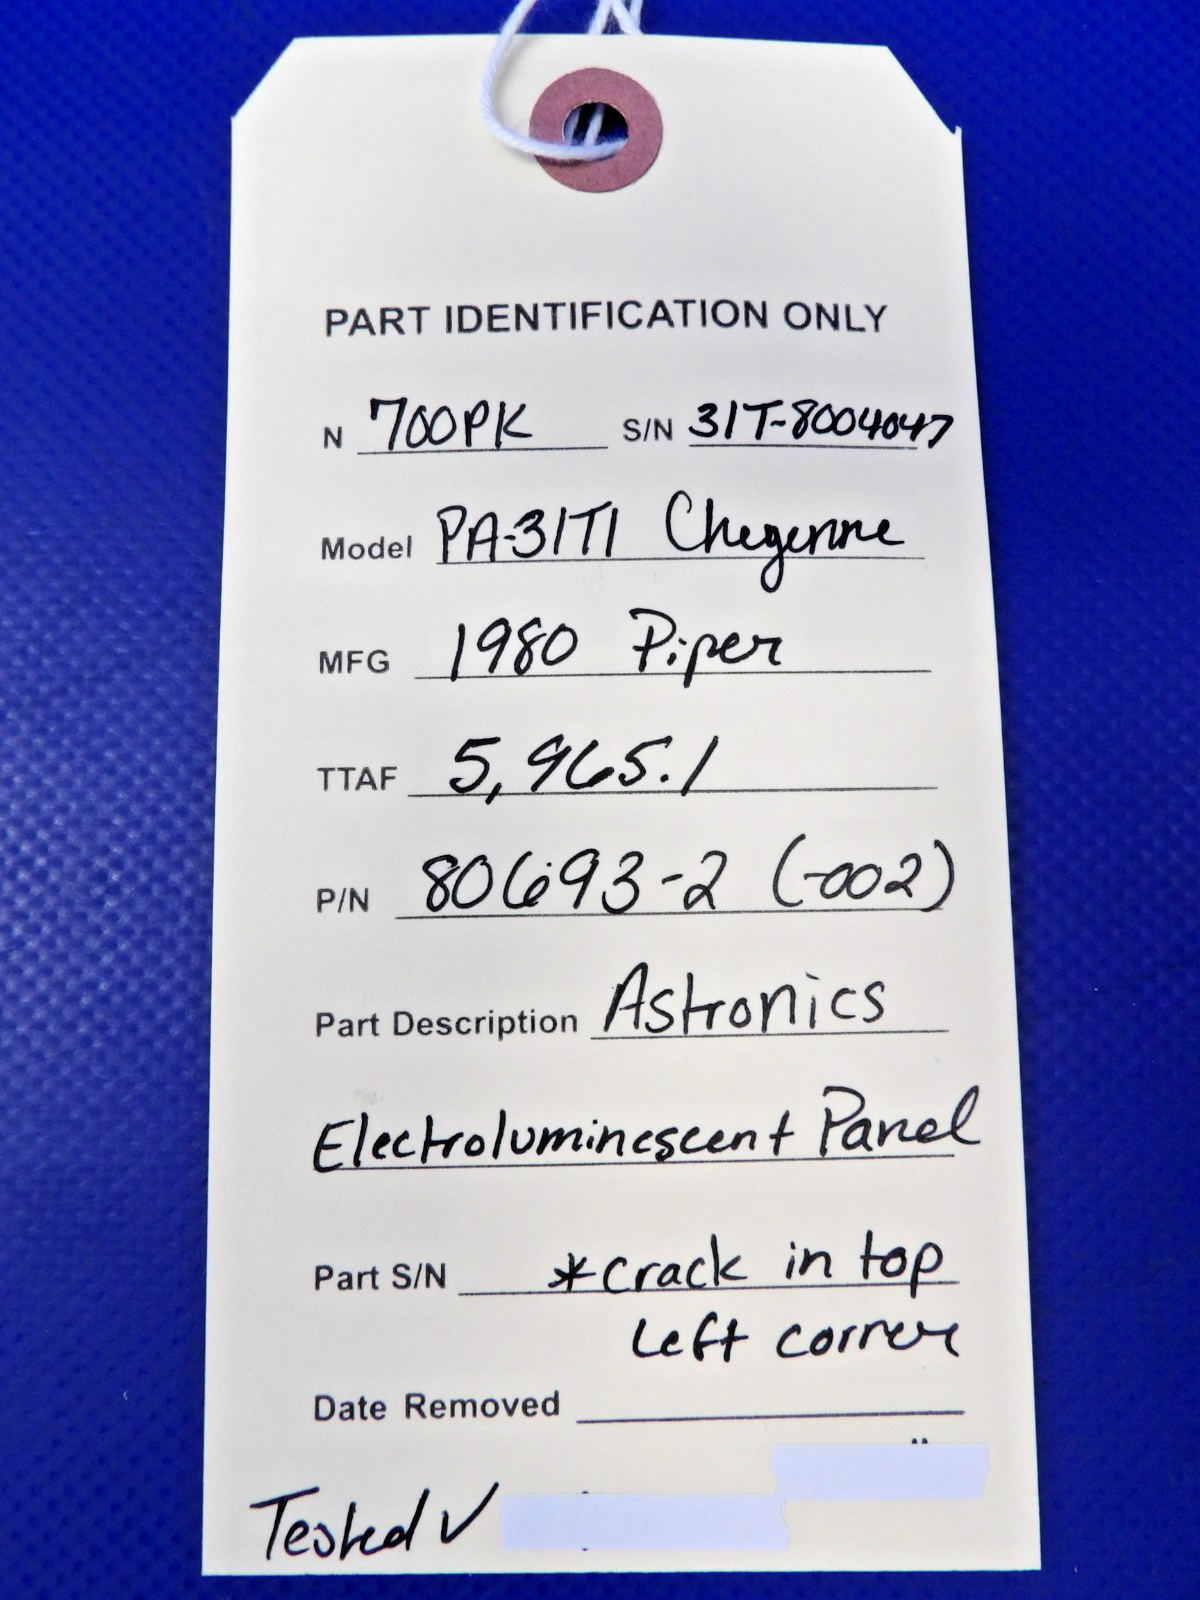 PART IDENTIFICATION ONLY
N 700PK S/N 31T-8004047
Model PA-31T1 Cheyenne
MFG 1980 Piper
TTAF 5,965.1
P/N 80693-2 (-002)
Part Description Astronics
Electroluminescent Panel
Part S/N *crack in top
left corner
Date Removed
Tested ✓